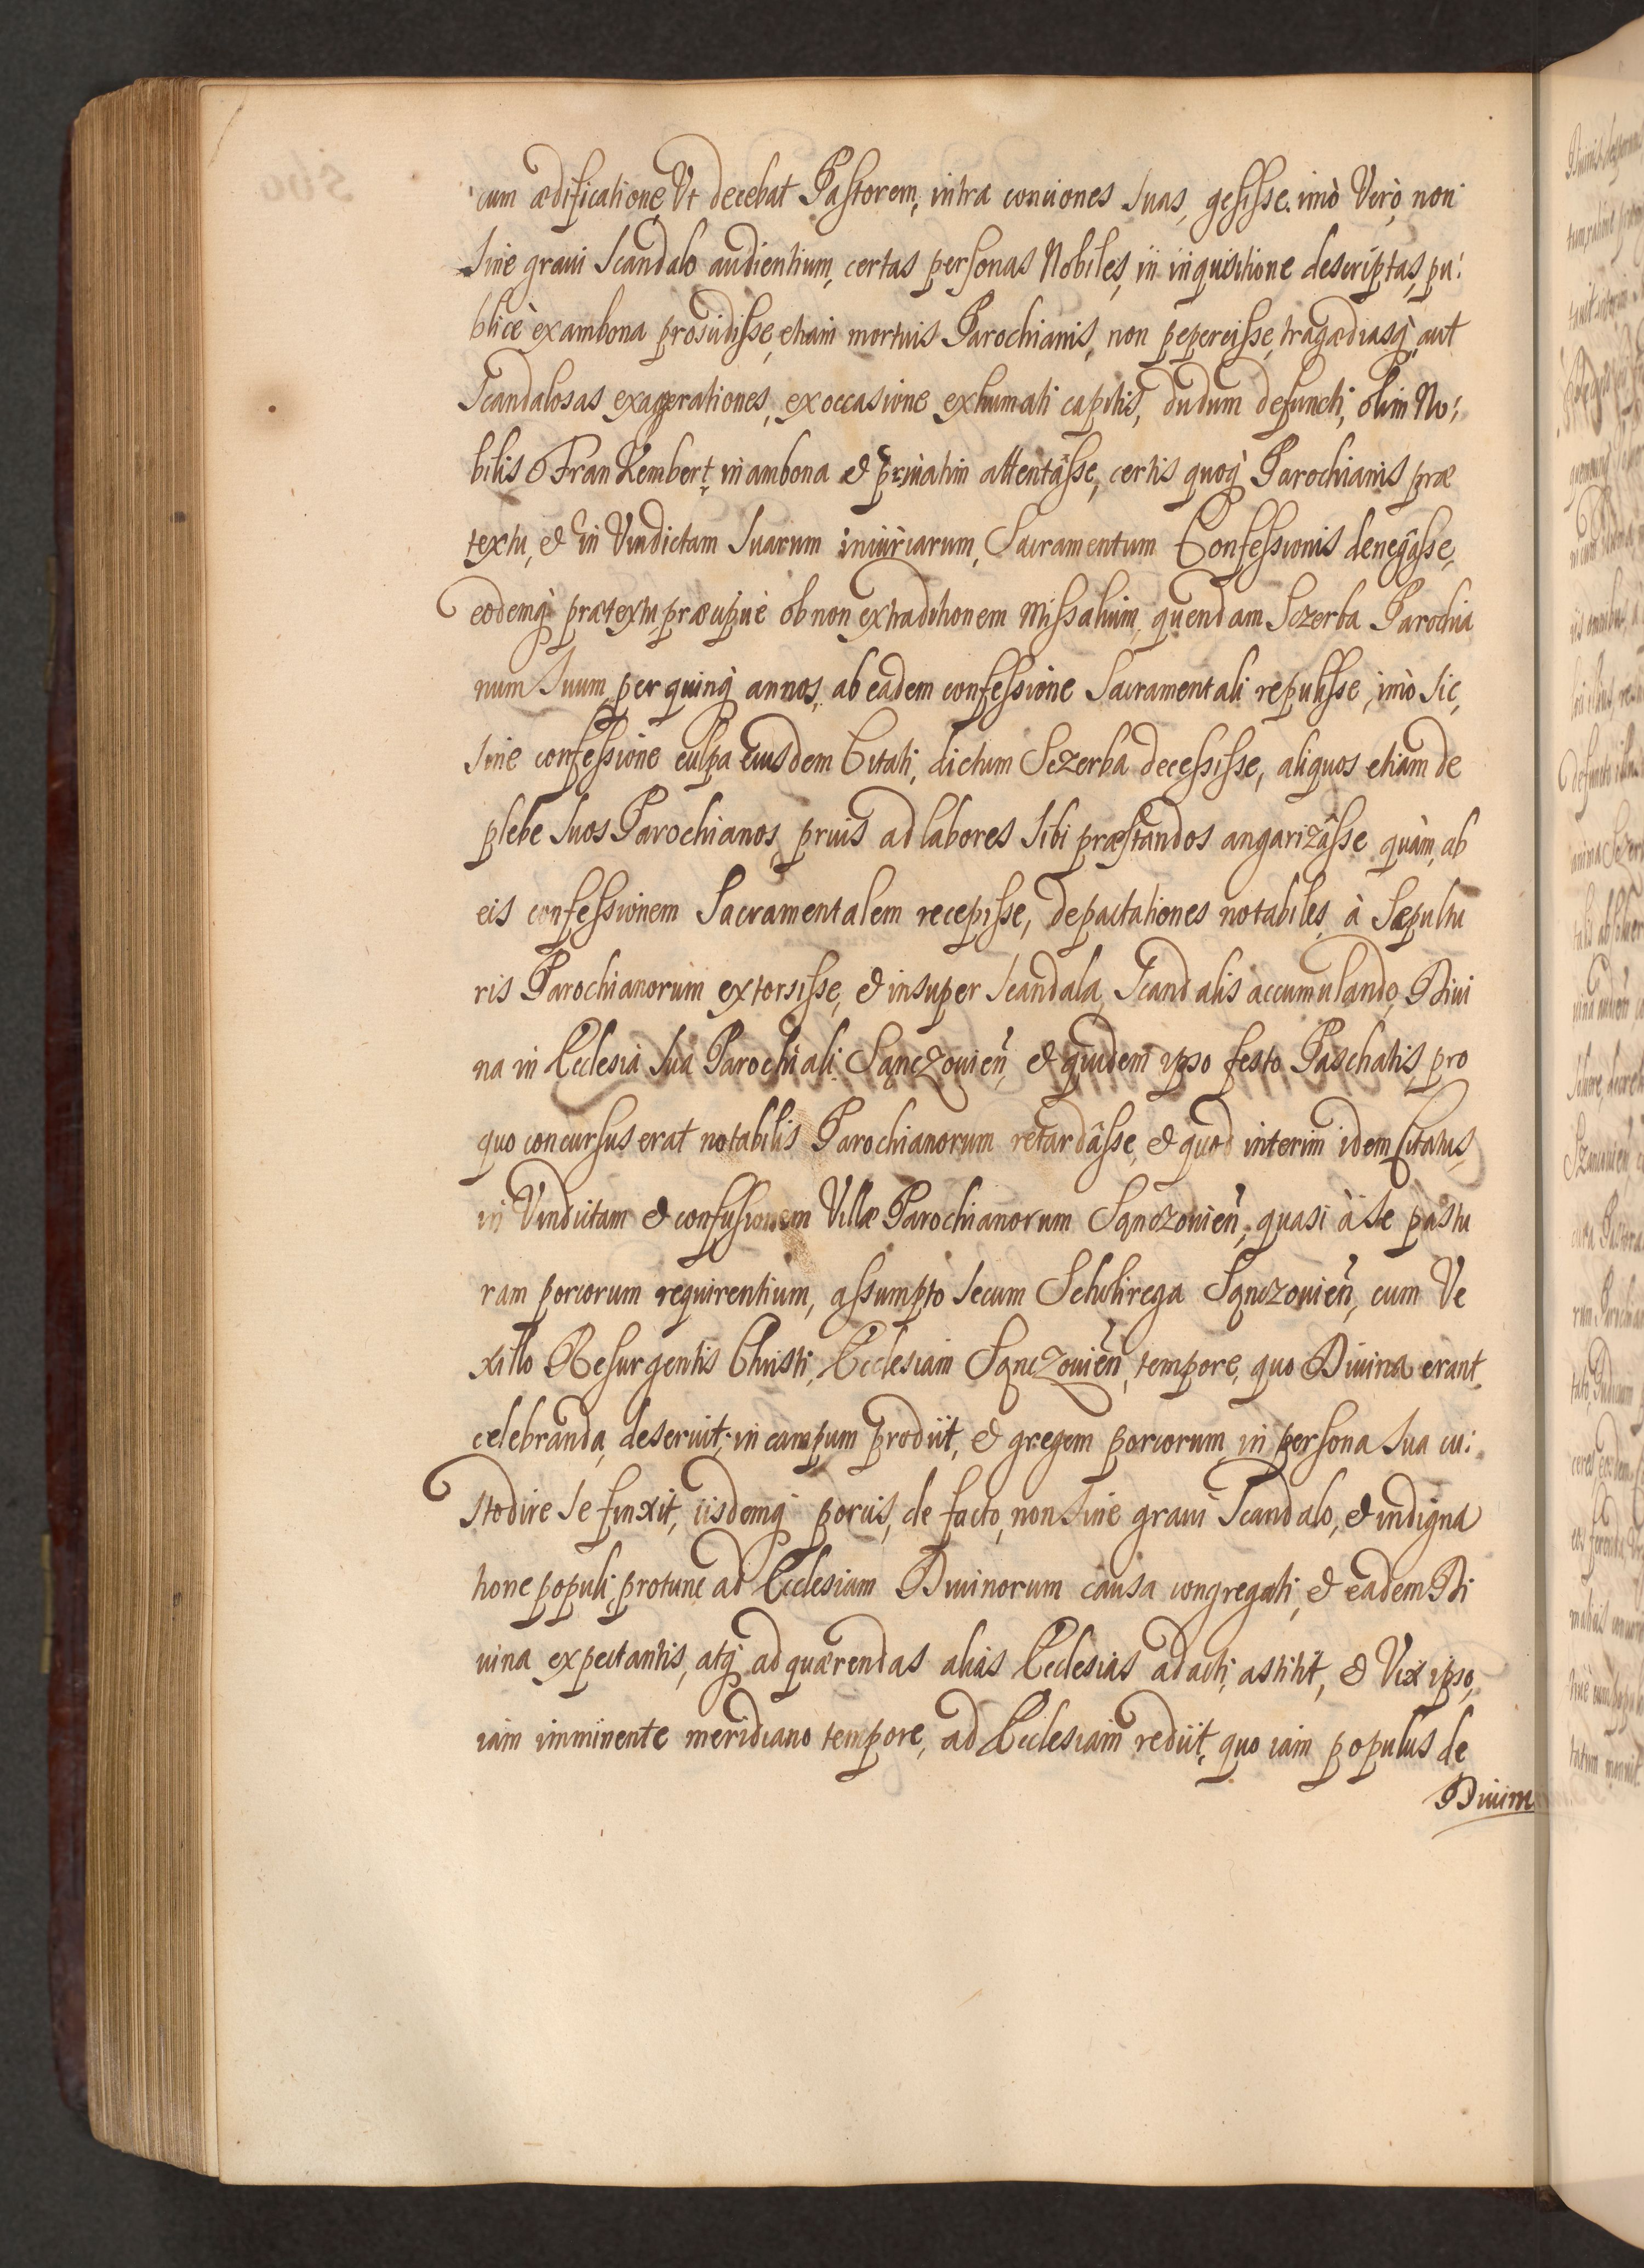 cum ædificatione, Vt decebat Pastorem, intra conciones suas, gesisse. imò Verò, non
sine graui scandalo audientium, certas personas Nobiles, in inquisitione descriptas, pu:
blicè ex ambona proscidisse, etiam mortuis Parochianis, non pepercisse, tragædiasq̀, aut
scandalosas exagerationes, ex occasione exhumati capitis, dudum defuncti, olim No:
bilis Fran Kembert, in ambona et priuatim attentâsse, certis quoq̀ Parochianis præ
textu, et in Vindictam suarum iniuriarum, Sacramentum Confessionis denegâsse,
eodemq̀ prætextu, præcipuè ob non extraditionem Missalium, quendam Sczerba Parochia
num suum, per quinq̀ annos, ab eadem confessione Sacramentali repulisse, imò sic,
sine confessione culpa eiusdem Citati, dictum Sczerba decessisse, aliquos etiam de
plebe suos Parochianos, prius ad labores sibi præstandos angarizâsse quàm, ab
eis confessionem Sacramentalem recepisse, depactationes notabiles, à Sæpultu
ris Parochianorum extorsisse, et insuper scandala, scandalis accumulando, Diui
na in Ecclesia sua Parochiali Sąnczouien̄, et quidem ipso festo Paschatis, pro
quo concursus erat notabilis Parochianorum retardâsse, et quod interim idem Citatus,
in Vindictam et confusionem Villæ Parochianorum Sąnczouien̄, quasi à se pastu
ram porcorum requirentium, assumpto secum Scholirega Sąnczouien̄, cum Ve
xillo Resurgentis Christi, Ecclesiam Sąnczouien̄, tempore, quo Diuina erant
celebranda, deseruit, in campum prodiit, et gregem porcorum in persona sua cu:
stodire se finxit, iisdemq̀ porcis, de facto, non sine graui scandalo, et indigna
tione populi, protunc ad Ecclesiam Diuinorum causa congregati, et eadem Di
uina expectantis, atq̀ ad quærendas alias Ecclesias adacti, astitit, et Vix ipso,
iam imminente meridiano tempore, ad Ecclesiam rediit, quo iam populus de
Diuinis